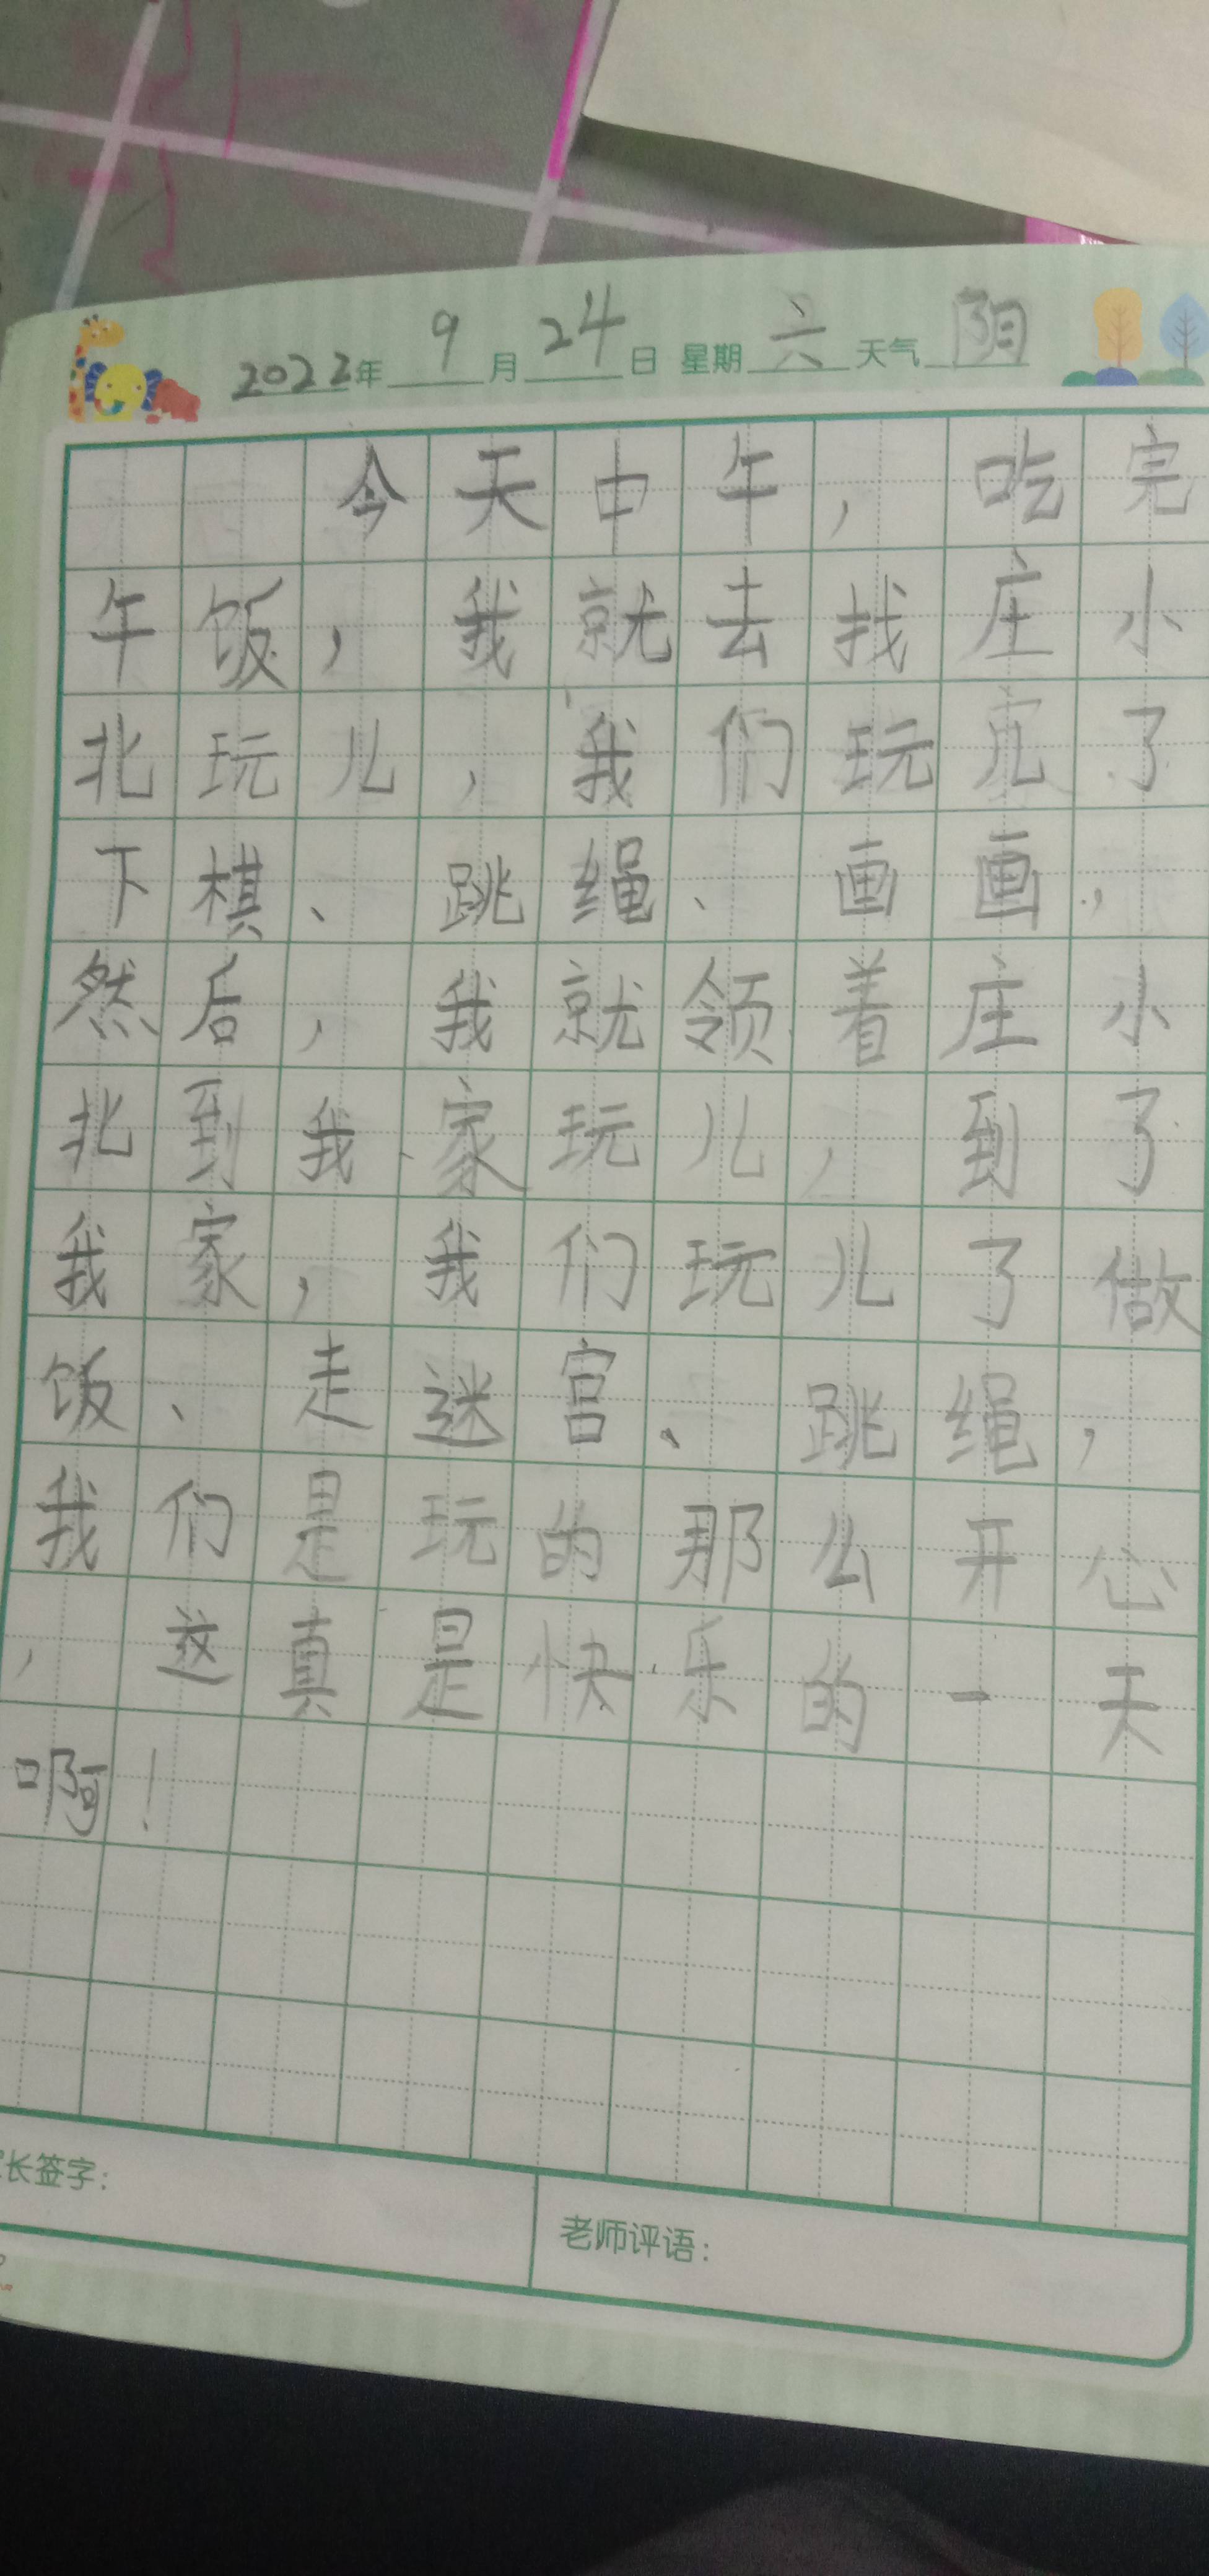 2022年9月24日 星期六天气阴
今天中午，吃完
午饭，我就去找庄小
北玩儿，我们玩儿了
下棋、跳绳、画画，
然后，我就领着庄小
北到我家玩儿，到了
我家，我们玩儿了做
饭、走迷宫、跳绳，
我们是玩的那么开心
，这真是快乐的一天
啊！
长签字：
老师评语：